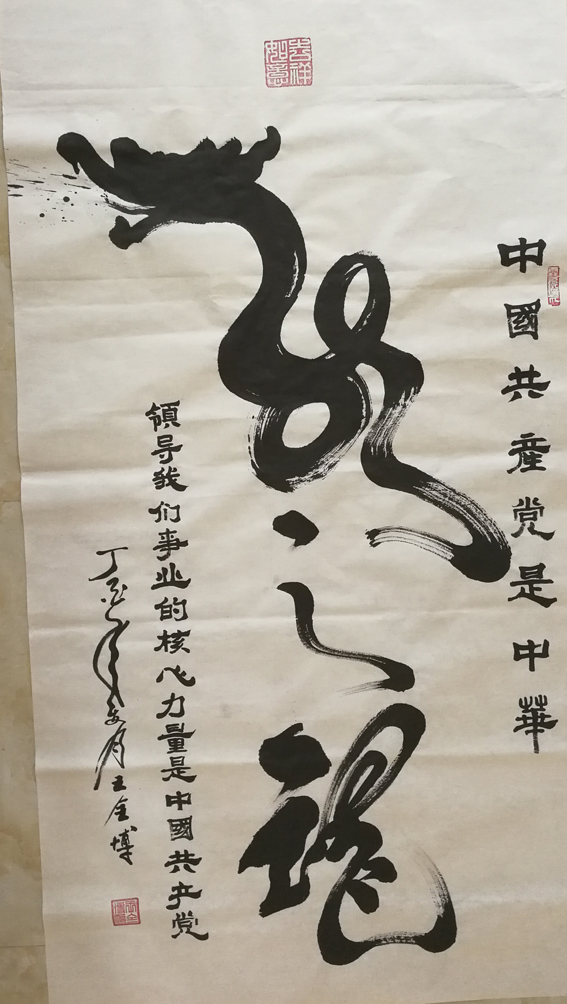 吉祥如意
中國共產党是中華
龍之魂
領导我们事业的核心力量是中國共产党
丁酉年夏月王金博